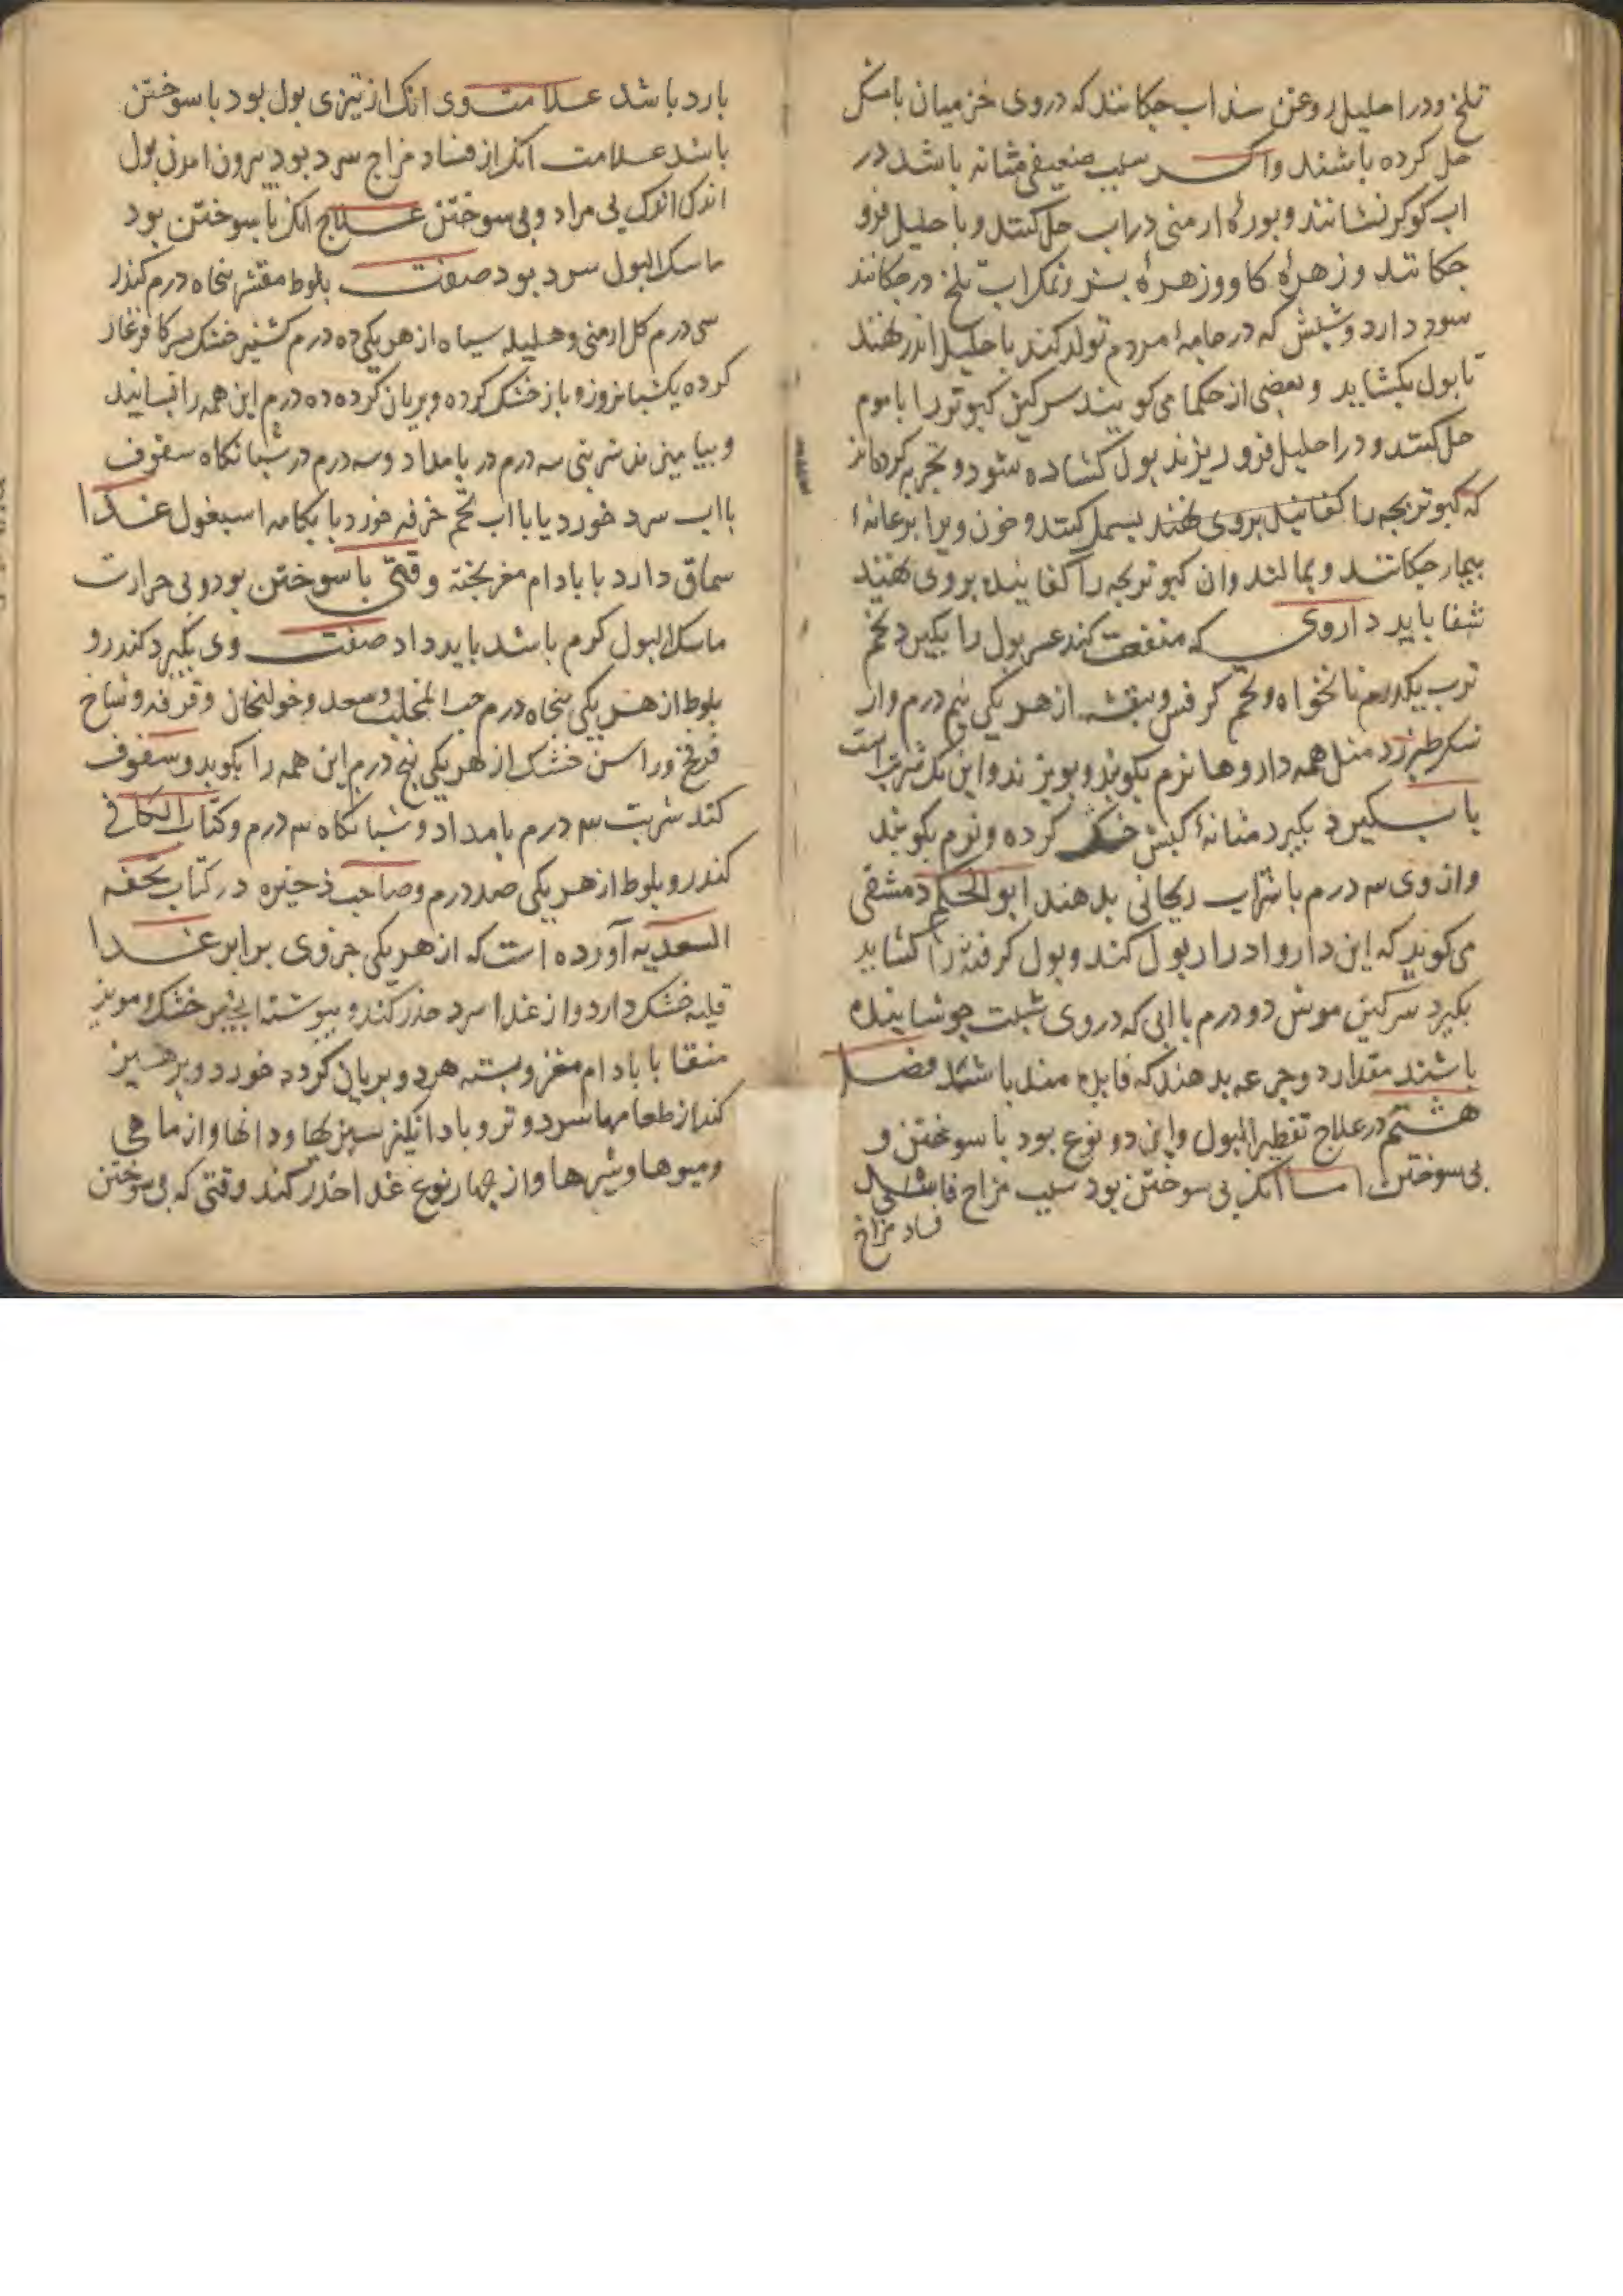 تلخ و در احلیل روغن سذاب چکانند که در وی خز میان با مشک
حل کرده باشند واکر سبب ضعیفی مثانه باشد در
اب کوکرد نشانند و بورهٔ ارمنی در اب حل کنند و با حلیل فرو
چکانند و زهرهٔ کاو و زهرهٔ بز و نمک اب تلخ در چکانند
سود دارد و شپش که در جامهٔ مردم تولد کند با حلیل اندر نهند
تا بول بکشاید و بعضی از حکما می کویند سرکین کبوتر را با موم
حل کنند و در احلیل فرو ریزند بول کشاده شود و تجربه کرده اند
که کبوتر بچه را کفانیده بر وی نهند بسمل کنند و خون ویرا بر عانهٔ
بیمار چکانند و بمالند وان کبوتر بچه را کفانیده بر وی نهند
شفا یابد داروی که منفعت کند عسر بول را بکیرد تخم
ترب یکدرم نانخواه و تخم کرفس و بنفشه از هر یکی نیم درم واز
شکر طبرزد مثل همه داروها نرم بکوبند و بویزند و این یک شربت است
با سکبین د بکیرد مثانهٔ کبش خشک کرده و نرم بکوبند
واز وی سه درم با شراب ریحانی بدهند ابو الحکم دمشقی
می کوید که این دارو ادرار بول کند و بول کرفته را کشاید
بکیرد سرکین موش دو درم با ابی که در وی شبت جوشانیده
باشند مقدار دو جرعه بدهند که فایده مند باشد فصل
هشتم در علاج تقطیر البول واین دو نوع بود با سوختن و
بی سوختن اما انک بی سوختن بود سبب مزاج فاسد
فساد مزاج
بارد باشد علامت وی انک از تیزی بول بود با سوختن
باشد علامت انک از فساد مزاج سرد بود بیرون امدن بول
اندک اندک بی مراد و بی سوختن علاج انک با سوختن بود
ماسک البول سرد بود صفت بلوط مقشر پنجاه درم کندر
سی درم کل ارمنی و هلیله سیاه از هر یکی ده درم کشنیز خشک بسرکا فرغار
کرده یکشبانروز و باز خشک کرده و بریان کرده ده درم این همه را بسایند
و بیامیزند شربتی سه درم در بامداد و سه درم در شبانکاه سفوف
با اب سرد خورد یا با اب تخم خرفه خورد یا بکامه اسبغول غذا
سماق دارد با بادام مغز پخته وقتی با سوختن بود و بی حرارت
ماسک البول کرم باشد باید داد صفت وی بکیرد کندر و
بلوط از هر یکی پنجاه درم حب المحلب و سعد و خولنجان و قرفه و شاخ
و راسن خشک از هر یکی پنج درم این همه را بکوبد و سفوف
کند شربت سه درم بامداد و شبانکاه سه درم و کتاب الکافی
کندر و بلوط از هر یکی صد درم و صاحب ذخیره در کتاب تحفه
السعدیه آورده است که از هر یکی جزوی برابر غذا
قلیه خشک دارد واز غذا سرد حذر کند و پیوسته انجیر خشک و مویز
منقا با بادام مغز و پسته هر دو بریان کرده خورد و پرهیز
کند از طعامها سرد و تر و باد انکیز سبزیها و دانها واز ماهی
و میوها و شیرها واز چهار نوع غذا حذر کند وقتی که بی سوختن